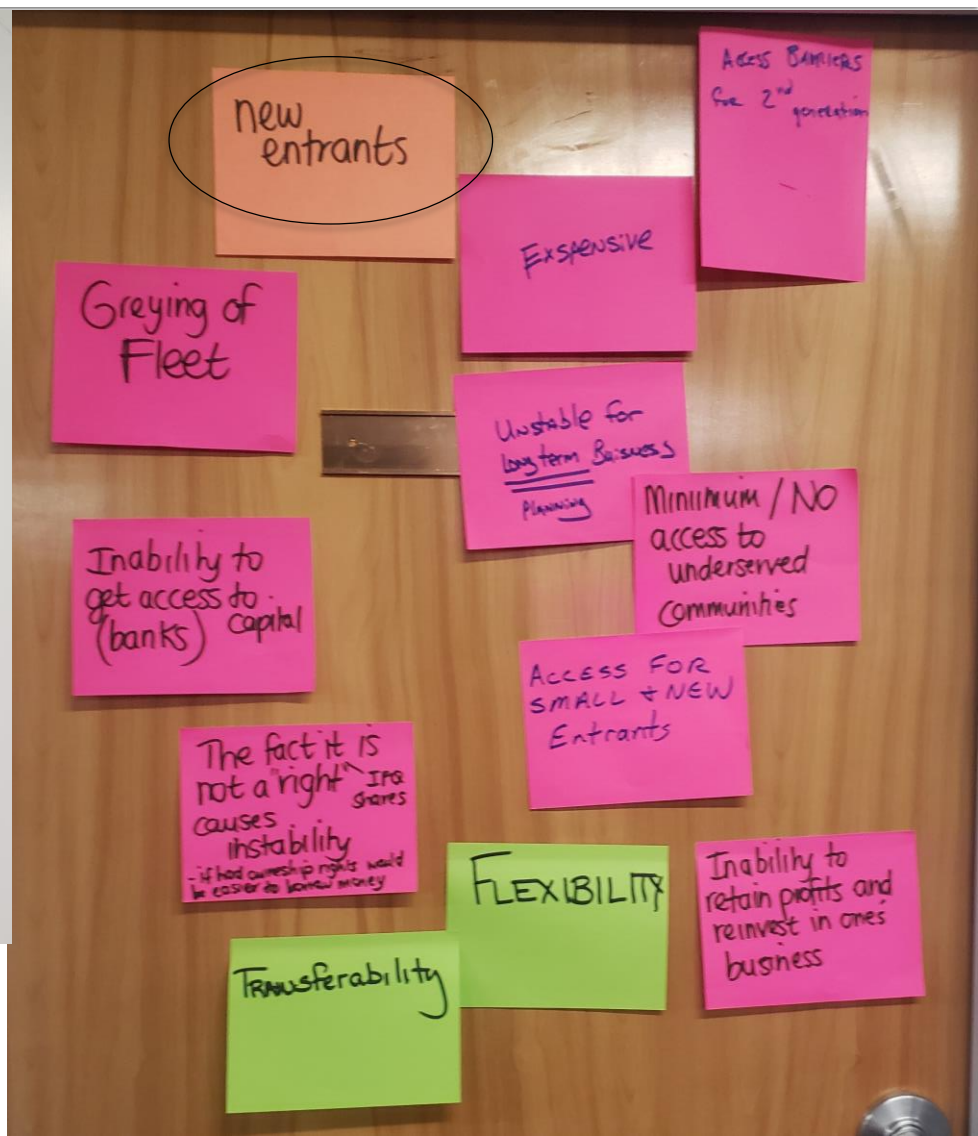 new
entrants
Access Barriers
for 2nd
generation
Exspensive
Greying of
Fleet
Unstable for
Long term Baisness
Planning
Minimum / NO
access to
underserved
communities
Inability to
get access to
(banks) capital
ACCESS FOR
SMALL + NEW
Entrants
The fact it is
not a "right" IFQ
shares
causes
instability
- if had ownership rights would
be easier to borrow money
FLEXIBILITY
Inability to
retain profits and
reinvest in ones
business
Transferability